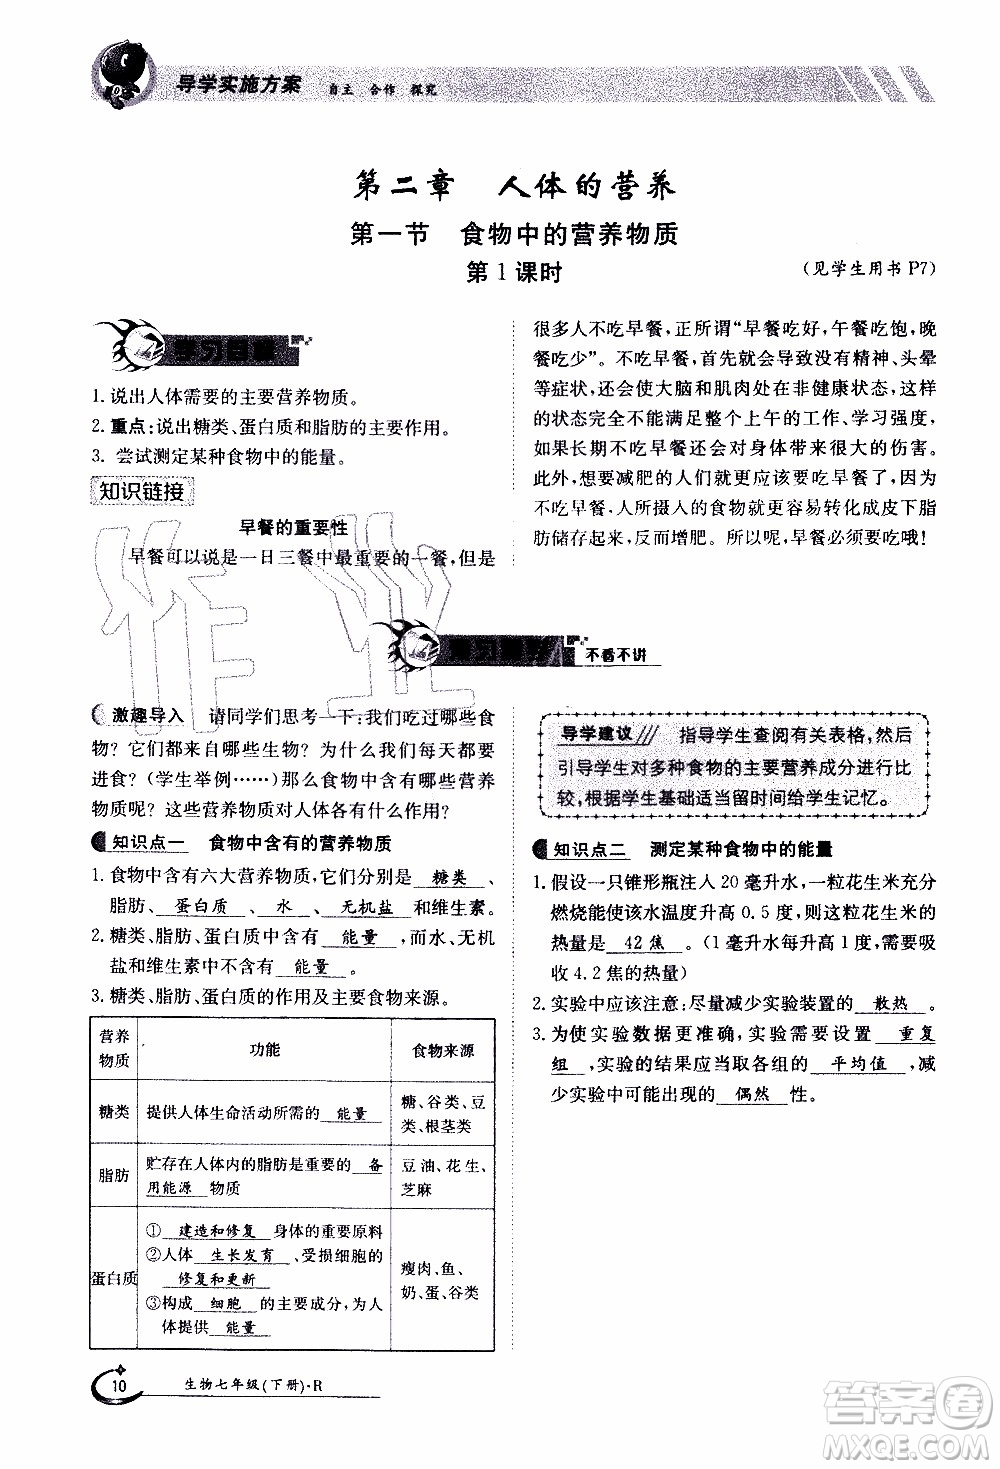 导学实施方案 自主 合作 探究
第二章 人体的营养
第一节 食物中的营养物质
第1课时
(见学生用书 P7)
学习目标
1. 说出人体需要的主要营养物质。
2. 重点:说出糖类、蛋白质和脂肪的主要作用。
3. 尝试测定某种食物中的能量。
知识链接
早餐的重要性
早餐可以说是一日三餐中最重要的一餐,但是
很多人不吃早餐,正所谓“早餐吃好,午餐吃饱,晚
餐吃少”。不吃早餐,首先会导致没有精神、头晕
等症状,还会使大脑和肌肉处在非健康状态,这样
的状态完全不能满足整个上午的工作、学习强度,
如果长期不吃早餐还会对身体带来很大的伤害。
此外,想要减肥的人们就更应该要吃早餐了,因为
不吃早餐,人所摄入的食物更容易转化成皮下脂
肪储存起来,反而增肥。所以,早餐必须要吃哦!
不看不讲
激趣导入 请同学们思考一下:我们吃过哪些食
物?它们都来自哪些生物?为什么我们每天都要
进食?(学生举例……)那么食物中含有哪些营养
物质呢?这些营养物质对人体各有什么作用?
知识点一 食物中含有的营养物质
1. 食物中含有六大营养物质,它们分别是 糖类 、
脂肪、 蛋白质 、 水 、 无机盐 和维生素。
2. 糖类、脂肪、蛋白质中含有 能量 ,而水、无机
盐和维生素中不含有 能量 。
3. 糖类、脂肪、蛋白质的作用及主要食物来源。
营养
物质
功能
食物来源
糖类
提供人体生命活动所需的 能量
糖、谷类、豆
类、根茎类
脂肪
贮存在人体内的脂肪是重要的 备
用能源 物质
豆油、花生、
芝麻
蛋白质
① 建造和修复 身体的重要原料
②人体 生长发育 、受损细胞的
修复和更新
③构成 细胞 的主要成分,为人
体提供 能量
瘦肉、鱼、
奶、蛋、谷类
导学建议 指导学生查阅有关表格,然后
引导学生对多种食物的主要营养成分进行比
较,根据学生基础适当留时间给学生记忆。
知识点二 测定某种食物中的能量
1. 假设一只锥形瓶注入 20 毫升水,一粒花生米充分
燃烧能使该水温度升高 0.5 度,则这粒花生米的
热量是 42 焦 。(1 毫升水每升高 1 度,需要吸
收 4.2 焦的热量)
2. 实验中应该注意:尽量减少实验装置的 散热 。
3. 为使实验数据更准确,实验需要设置 重复
组 ,实验的结果应当取各组的 平均值 ,减
少实验中可能出现的 偶然 性。
10 生物七年级(下册)·R
答案卷
MXQE.COM
作业